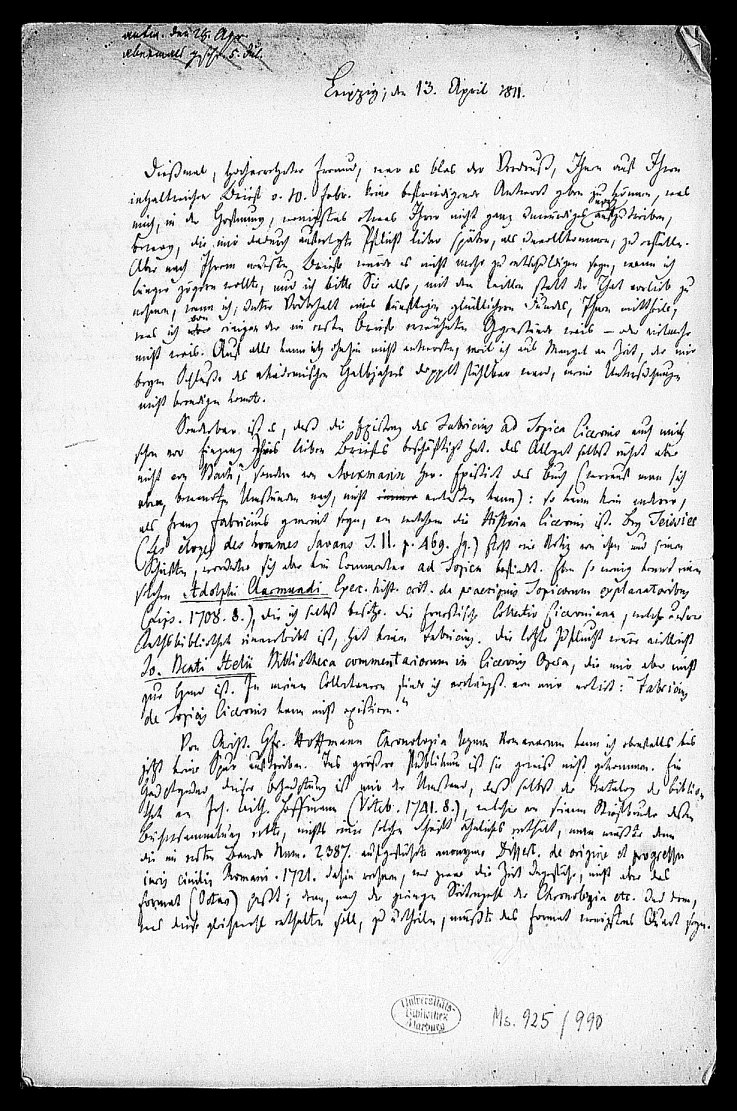 antw. den 26. Apr.
abermals geschr. 5. Jul.
Leipzig, den 13. April 1811.
Dießmal, hochverehrter Freund, war es blos der Verdruß, Ihnen auf Ihren
inhaltreichen Brief v. 10. Febr. keine befriedigende Antwort geben zu können, was
mich, in der Hoffnung, wenigstens etwas Ihrer nicht ganz Unwürdiges noch aufzutreiben,
bewog, die mir dadurch auferlegte Pflicht lieber später, als unvollkommen, zu erfüllen.
Aber nach Ihrem neuesten Briefe würde es nicht mehr zu entschuldigen seyn, wenn ich
länger zögern wollte, und ich bitte Sie also, mit dem Willen statt der That vorlieb zu
nehmen, wenn ich, unter Vorbehalt eines künftigen glücklichern Fundes, Ihnen mittheile,
was ich von einigen der im ersten Briefe erwähnten Gegenstände weis – oder vielmehr
nicht weis. Auf alle kann ich ohnehin nicht antworten, weil ich aus Mangel an Zeit, der mir
beym Schlusse des akademischen Halbjahres doppelt fühlbar ward, meine Untersuchungen
nicht beendigen konnte.
Sonderbar ist es, daß die Existenz des Fabricius ad Topica Ciceronis auch mich
schon vor Eingang Ihres lieben Briefes beschäftigt hat. Das Allegat selbst rühret aber
nicht von Bach, sondern von Stockmann her. Existirt das Buch (woran man
bewandten Umständen nach, nicht zweifeln kann): so kann kein anderer,
als Franz Fabricius gemeint seyn, von welchem die Historia Ciceronis ist. Bey Teissier
(Les eloges des hommes savans T. II. p. 469. sq.) steht eine Notiz von ihm und seinen
Schriften, worunter sich aber kein Commentar ad Topica befindet. Eben so wenig kennt einen
solchen Adolphi Clarmundi Exerc. hist. crit. de praecipuis Topicorum explanatoribus
(Lips. 1708. 8.), die ich selbst besitze. Die Ernestische Collectio Ciceroniana, welche unserer
Rathsbibliothek einverleibt ist, hat keinen Fabricius. Die letzte Zuflucht wäre vielleicht
Bibliotheca commentariorum in Ciceronis Opera, die mir aber nicht
zur Hand ist. In meinen Collectaneen finde ich vorlängst von mir notirt: "Fabricius
de Topicis Ciceronis kann nicht existiren."
Von Christ. Gfr. Hoffmann Chronologia legum Romanarum kann ich ebenfalls bis
jetzt keine Spur auftreiben. Ins größere Publikum ist sie gewis nicht gekommen. Ein
Hauptgrund dieser Behauptung ist mir der Umstand, daß selbst der Katalog der Biblio-
thek von Joh. Wilh. Hoffmann (Viteb. 1741. 8.), welcher von seinem Bruder dessen
Büchersammlung erbte, nichts einer solchen Schrift Ähnliches enthält, man müßte denn
die im ersten Bande Num. 2387. aufgeführte anonyme Dissert. de origine et progressu
iuris civilis Romani. 1721. dahin rechnen, wo zwar die Zeit zuträfe, nicht aber das
Format (Octav) paßt; denn, nach der geringen Seitenzahl der Chronologia etc. und dem,
was diese gleichwohl enthalten soll, zu urtheilen, müßte das Format wenigstens Quart seyn.
Universitäts-
Bibliothek
Marburg
Ms. 925/990